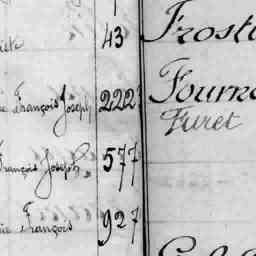 43
Frost
François Joseph 222
Fourn
Furet
François Joseph 577
François 927